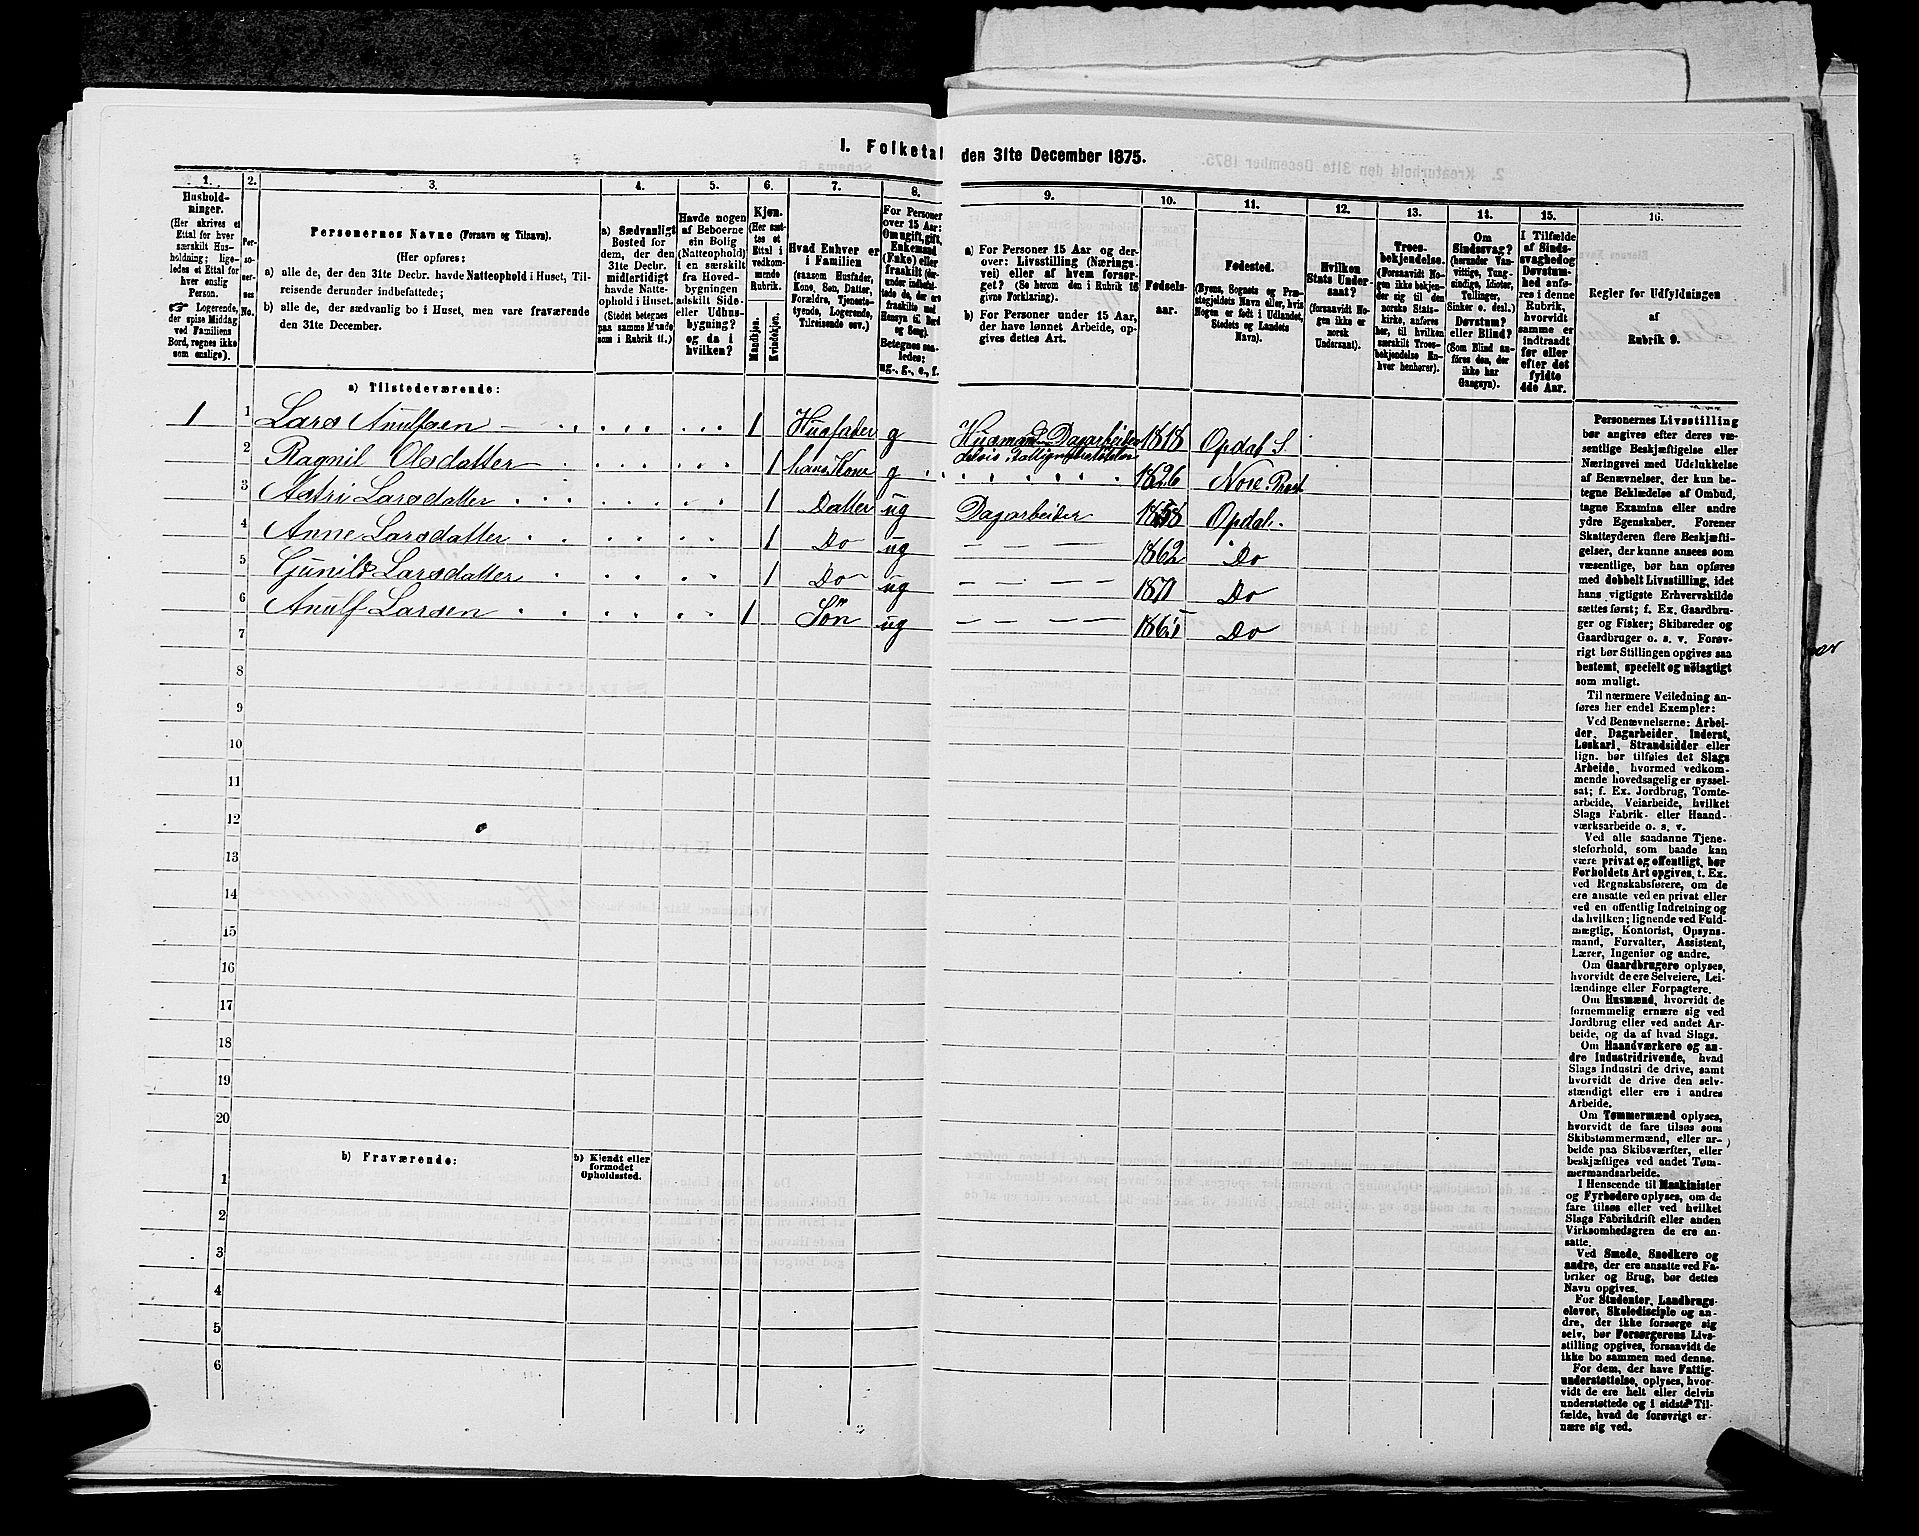 I. Folketal den 31te December 1875.
1. 2. 3. 4. 5. 6. 7. 8. 9. 10. 11. 12. 13. 14. 15. 16.
Husholdninger.
(Her skrives et
Ettal for hver
særskilt Husholdning; ligeledes
et Ettal for
hver enslig
Person.
☞ Logerende,
der spise Middag
ved Familiens
Bord, regnes ikke
som enslige).
Personernes No.
Personernes Navne (Fornavn og Tilnavn).
(Her opføres:
a) alle de, der den 31te Decbr. havde Natteophold i Huset, Tilreisende
derunder indbefattede;
b) alle de, der sædvanlig bo i Huset, men vare fraværende
den 31te December.
a) Sædvanligt
Bosted for
dem, der den
31te Decbr.
midlertidigt
havde Natteophold
i Huset.
(Stedet betegnes
paa samme Maade
som i Rubrik 11.)
Havde nogen
af Beboerne
sin Bolig
(Natteophold)
i en særskilt
fra Hovedbygningen
adskilt Side-
eller Udhusbygning?
og da i
hvilken?
Kjøn.
(Her sættes
et
Ettal i
vedkommende
Rubrik.
Mandkjøn.
Kvindekjøn.
Hvad Enhver er
i Familien
(saasom Husfader,
Kone, Søn, Datter,
Forældre, Tjenestetyende,
Logerende,
Tilreisende osv.)
For Personer
over 15 Aar:
Om ugift, gift,
Enkemand
(Enke) eller
fraskilt
Betegnes saaledes:
ug., g., e., f.
a) For Personer 15 Aar og derover:
Livsstilling (Næringsvei)
eller af hvem forsørget?
(Se herom den i Rubrik 16
givne Forklaring).
b) For Personer under 15 Aar,
der have lønnet Arbeide, opgives
dettes Art.
Fødselsaar.
Fødested.
(Byens, Sognets og Præstegjeldets
Navn eller, hvis
Nogen er født i Udlandet,
Stedets og Landets
Navn).
Hvilken
Stats Undersaat?
(forsaavidt Nogen
ikke er
norsk
Undersaat).
Troesbekjendelse.
(Forsaavidt Nogen
ikke bekjender
sig til den
norske Statskirke,
anføres
her, til hvilken
særskilt Troesbekjendelse
Enhver
henhører).
Om
Sindssvag?
(herunder Vanvittige,
Tungsindige,
Idioter,
Tullinger,
Sinker o. desl.)
Døvstum?
eller Blind?
(Som Blind anføres
den, der
ikke har
Gangsyn).
I Tilfælde
af Sindssvaghed
og
Døvstumhed
anføres
i denne
Rubrik,
hvorvidt
samme er
indtraadt
før eller
efter det
fyldte
4de Aar.
Regler for Udfyldningen
af
Rubrik 9.
a) Tilstedeværende:
1 1 Lars Anulfsen 1 Husfader g Husmand Dagarbeider 1818 Opdal S
delvis Fattigunderstøttelse
2 Ragnil Olsdatter 1 hans Kone g 1826 Nore Præst
3 Astri Larsdatter 1 Datter ug Dagarbeider 1858 Opdal
4 Anne Larsdatter 1 Do ug 1862 Do
5 Gunild Larsdatter 1 Do ug 1871 Do
6 Anulf Larsen 1 Søn ug Do
7
8
9
10
11
12
13
14
15
16
17
18
19
20
b) Fraværende:
b) Kjendt eller
formodet
Opholdssted.
1
2
3
4
5
6
Personernes Livsstilling
bør angives efter deres væsentlige
Beskjæftigelse eller
Næringsvei med Udelukkelse
af Benævnelser, der kun betegne
Beklædelse af Ombud,
tagne Examina eller andre
ydre Egenskaber. Forener
Skatteyderen flere Beskjæftigelser,
der kunne ansees som
væsentlige, bør han opføres
med dobbelt Livsstilling, idet
hans vigtigste Erhvervskilde
sættes først; f. Ex. Gaardbruger
og Fisker; Skibsreder og
Gaardbruger o. s. v. Forøvrigt
bør Stillingen opgives saa
bestemt, specielt og nøiagtigt
som muligt.
Til nærmere Veiledning anføres
her endel Exempler:
Ved Benævnelserne: Arbeider,
Dagarbeider, Inderst,
Løskarl, Strandsidder eller
lign. bør tilføies det Slags
Arbeide, hvormed vedkommende
hovedsagelig er sysselsat;
f. Ex. Jordbrug, Tomtearbeide,
Veiarbeide, hvilket
Slags Fabrik- eller Haandværksarbeide
o. s. v.
Ved alle saadanne Tjenesteforhold,
som baade kan
være privat og offentligt, bør
Forholdets Art opgives, t. Ex.
ved Regnskabsførere, om de
ere ansatte ved en privat eller
ved en offentlig Indretning og
da hvilken; lignende ved Fuldmægtig,
Kontorist, Opsynsmand,
Forvalter, Assistent,
Lærer, Ingeniør og andre.
Om Gaardbrugere oplyses,
hvorvidt de ere Selveiere, Leilændinge
eller Forpagtere.
Om Husmænd, hvorvidt de
fornemmelig ernære sig ved
Jordbrug eller ved andet Arbeide,
og da af hvad Slags.
Om Haandværkere og andre
Industridrivende, hvad
Slags Industri de drive, samt
hvorvidt de drive den selvstændigt
eller ere i andres
Arbeide.
Om Tømmermænd oplyses,
hvorvidt de fare tilsøs som
Skibstømmermænd, eller arbeide
paa Skibsværfter, eller
beskjæftiges ved andet Tømmermandsarbeide.
I Henseende til Maskinister
og Fyrbødere oplyses, om de
fare tilsøs eller ved hvilket
Slags Fabrikdrift eller anden
Virksomhedsgren de ere ansatte.
Ved Smede, Snedkere og
andre, der ere ansatte ved Fabriker
og Brug, bør dettes
Navn opgives.
For Studenter, Landbrugselever,
Skoledisciple og andre,
der ikke forsørge sig
selv, bør Forsørgerens Livsstilling
opgives, forsaavidt de
ikke bo sammen med denne.
For dem, der have Fattigunderstøttelse,
oplyses, hvorvidt
de ere helt eller delvis
understøttede og i sidste Tilfælde,
hvad de forøvrigt ernære
sig ved.